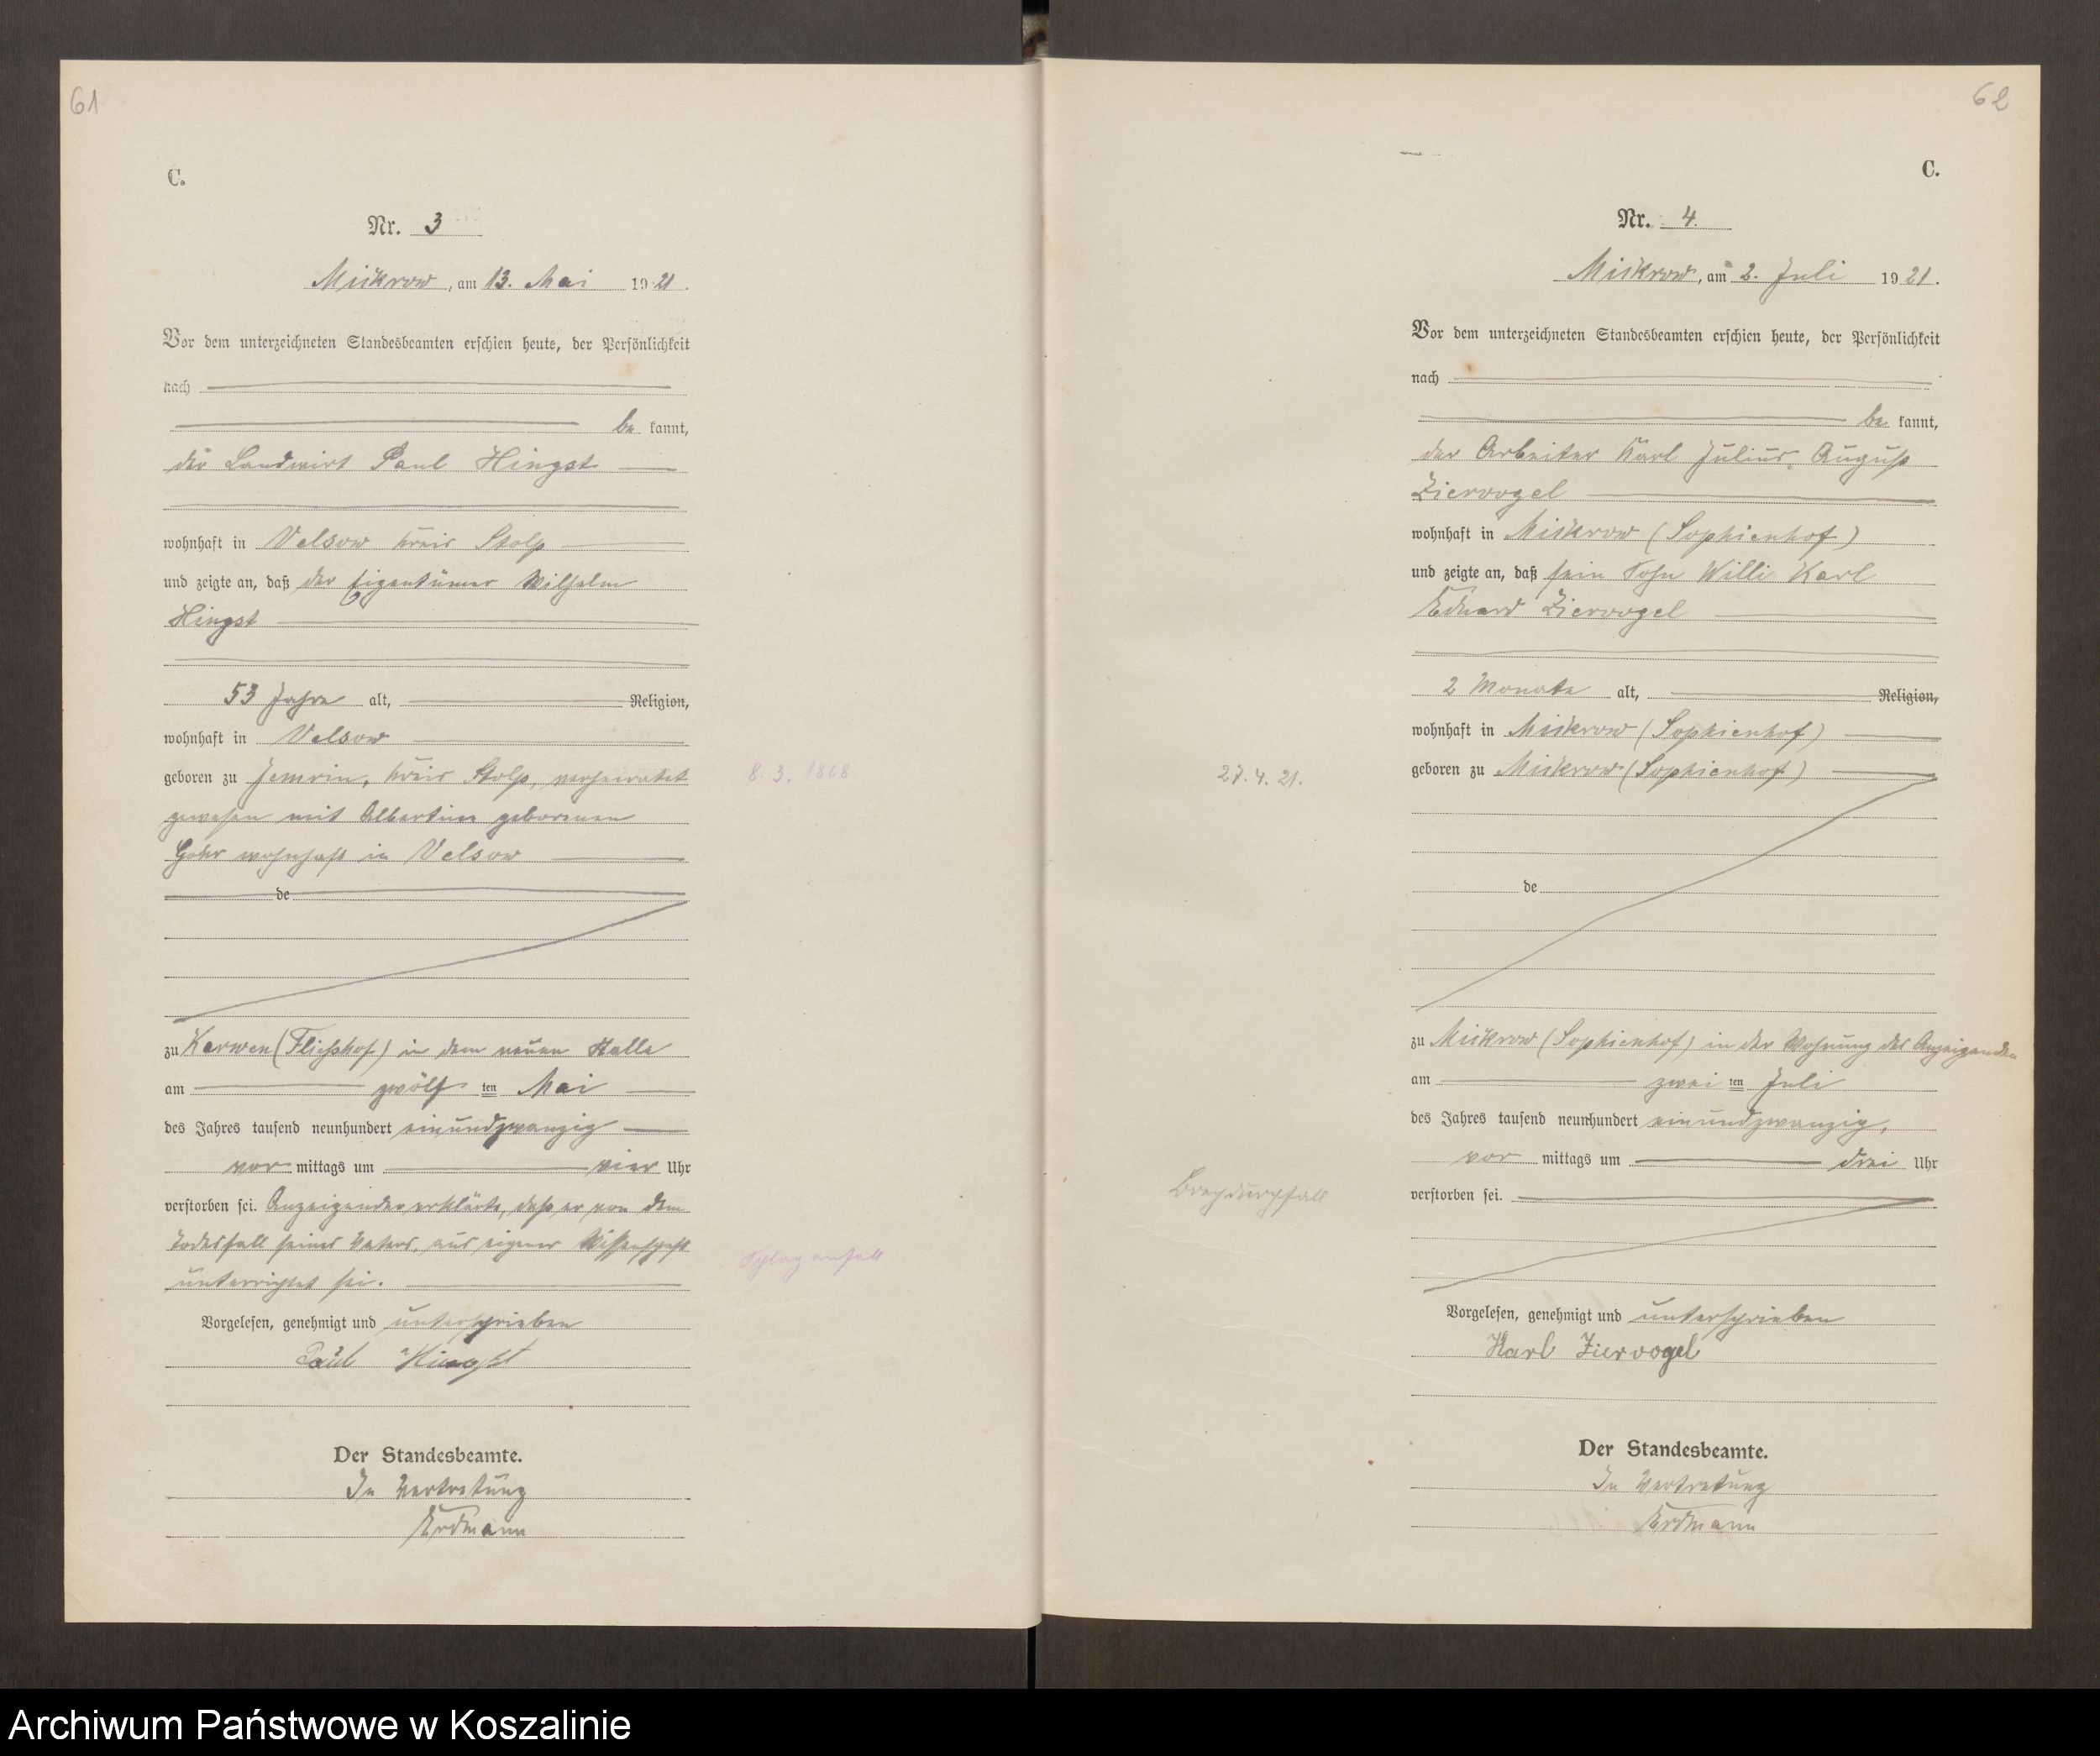 61
C.
Nr. 3
Mickrow, am 13. Mai 1921.
Vor dem unterzeichneten Standesbeamten erschien heute, der Persönlichkeit
nach
be kannt,
der Landwirt Paul Hingst
wohnhaft in Velsow Kreis Stolp
und zeigte an, daß der Eigentümer Wilhelm
Hingst
53 Jahre alt, Religion,
wohnhaft in Velsow
geboren zu Jemrin, Kreis Stolp, verheiratet
gewesen mit Albertine geborenen
Gohr wohnhaft in Velsow
de
zu Karwen (Fließhof) in dem neuen Stalle
am zwölf ten Mai
des Jahres tausend neunhundert einundzwanzig
vor mittags um vier Uhr
verstorben sei. Anzeigender erklärte, daß er von dem
Todesfall seines Vaters, aus eigener Wissenschaft
unterrichtet sei.
Vorgelesen, genehmigt und unterschrieben
Paul Hingst
Der Standesbeamte.
In Vertretung
Erdmann
8. 3. 1868
Schlaganfall
62
C.
Nr. 4.
Mickrow, am 2. Juli 1921.
Vor dem unterzeichneten Standesbeamten erschien heute, der Persönlichkeit
nach
be kannt,
der Arbeiter Karl Julius August
Ziervogel
wohnhaft in Mickrow (Sophienhof)
und zeigte an, daß sein Sohn Willi Karl
Eduard Ziervogel
2 Monate alt, Religion,
wohnhaft in Mickrow (Sophienhof)
geboren zu Mickrow (Sophienhof)
de
zu Mickrow (Sophienhof) in der Wohnung des Anzeigenden
am zwei ten Juli
des Jahres tausend neunhundert einundzwanzig,
vor mittags um drei Uhr
verstorben sei.
Vorgelesen, genehmigt und unterschrieben
Karl Ziervogel
Der Standesbeamte.
In Vertretung
Erdmann
27. 4. 21.
Brechdurchfall
Archiwum Państwowe w Koszalinie